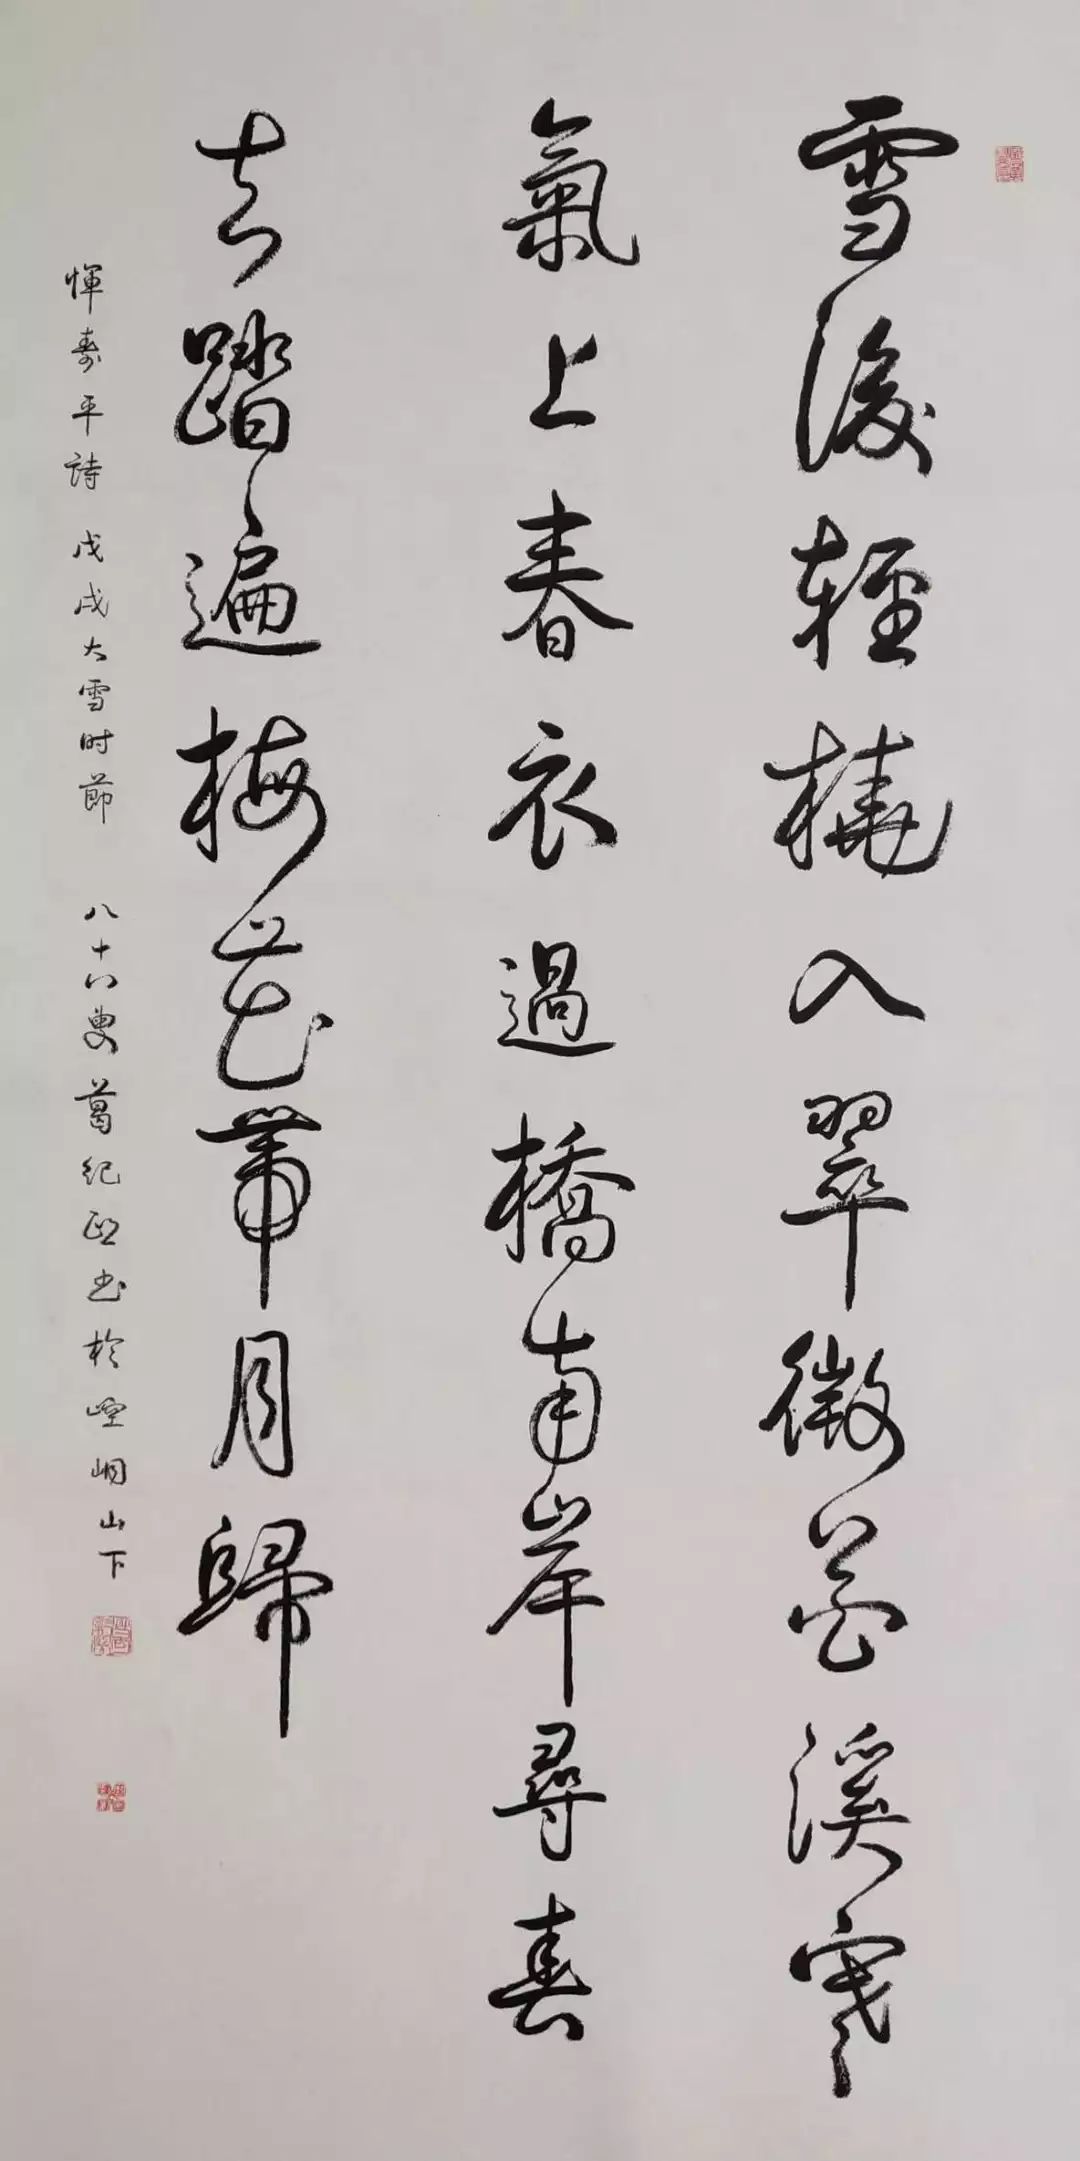 雪後輕橈入翠微花溪寒
氣上春衣過橋南岸尋春
去踏遍梅花帶月歸
惲壽平詩 戊戌大雪时節 八十八叟葛纪熙书於崆峒山下